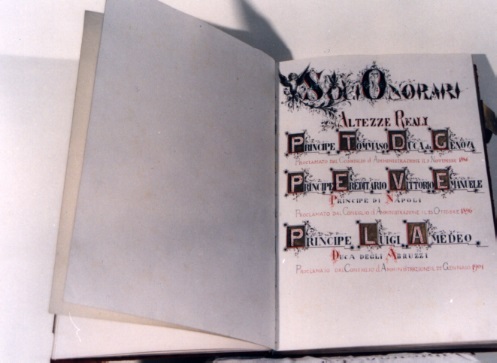 Soci Onorari
Altezze Reali
Principe Tommaso Duca di Genova
Proclamato dal Consiglio d'Amministrazione il
Principe Ereditario Vittorio Emanuele
Principe di Napoli
Proclamato dal Consiglio d'Amministrazione il Ottobre
Principe Luigi Amedeo
Duca degli Abruzzi
Proclamato dal Consiglio d'Amministrazione il Gennaio